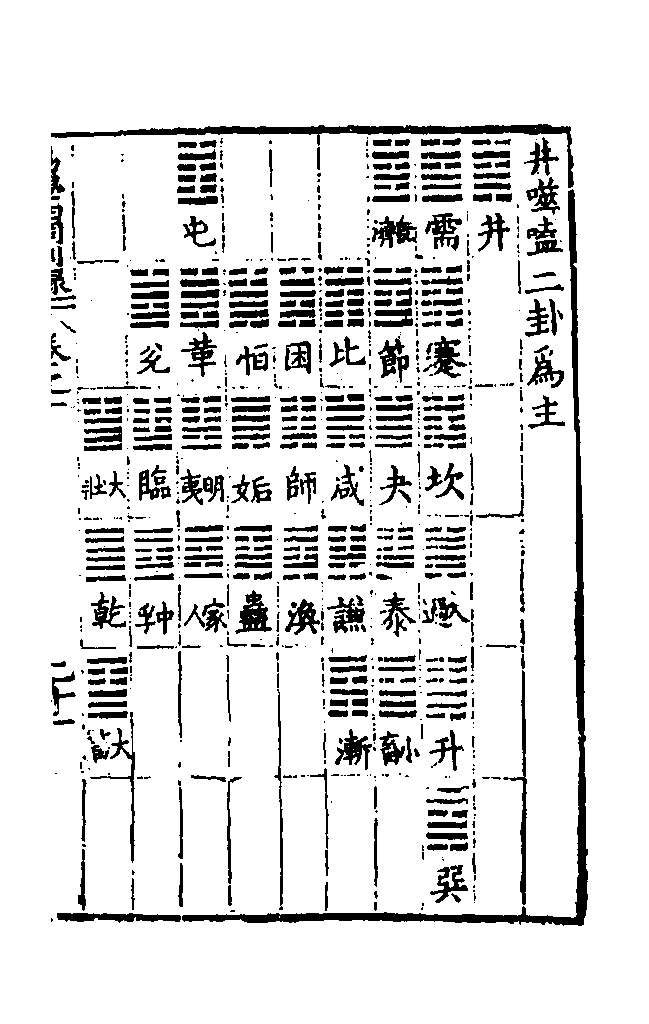 井噬嗑二卦爲主
井
需 蹇 坎 遯 升 巽
既濟 節 夬 泰 小畜
比 咸 謙 漸
困 師 渙
恒 姤 蠱
屯 革 明夷 家人
兊 臨 中孚
大壯 乾 大畜